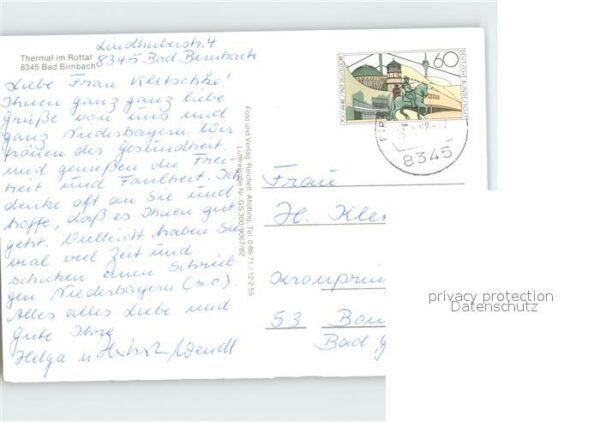 Lindhuberstr. 4
Thermal im Rottal
8345 Bad Birnbach
8345 Bad Birnbach
60
DEUTSCHE BUNDESPOST
Liebe Frau Kletschke!
Ihnen ganz ganz liebe
Grüße von uns und
ganz Niederbayern. Wir
frönen der Gesundheit
und genießen die Frei-
heit und Faulheit. Ich
denke oft an Sie und
hoffe, daß es Ihnen gut
geht. Vielleicht haben Sie
mal viel Zeit und
schicken einen Schrieb
gen Niederbayern (s.o.)
Alles alles Liebe und
Gute Ihre
Helga u. Wendl
Foto und Verlag Reichelt, Altötting, Tel. 0 86 71 / 12 2 55
Luftfreigabe Nr. GS 300/9067/82
8345
Frau
H. Kle
Kronprin
53 Bon
Bad G
privacy protection
Datenschutz